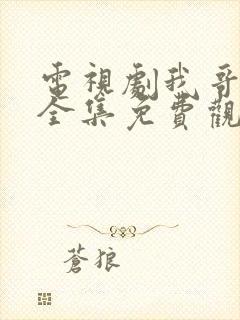 電視劇我哥
全集免費觀
蒼狼